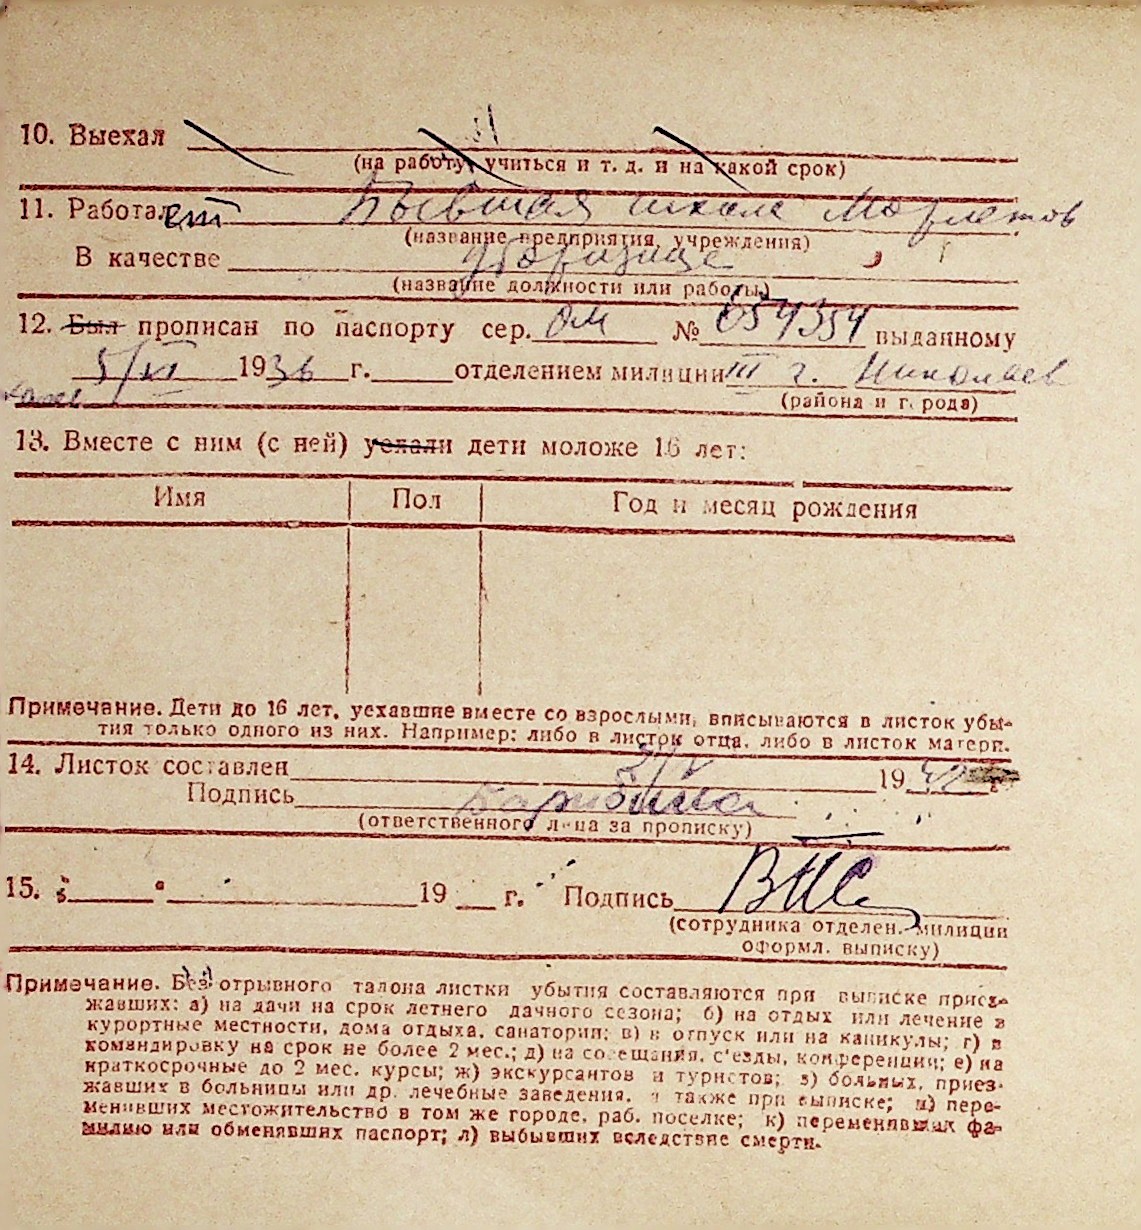 10. Выехал
(на работу, учиться и т. д. и на какой срок)
11. Работает Бывшая школа
(название предприятия, учреждения)
В качестве уборщице
(название должности или работы)
12. Был прописан по паспорту сер. ОМ № 654354 выданному
5/VI 1936 г. отделением милиции III г. Николаев
(района и города)
13. Вместе с ним (с ней) уехали дети моложе 16 лет:
Имя Пол Год и месяц рождения
Примечание. Дети до 16 лет, уехавшие вместе со взрослыми, вписываются в листок убы-
тия только одного из них. Например: либо в листок отца, либо в листок матери.
14. Листок составлен 19 42 г.
Подпись
(ответственного лица за прописку)
15. 19 г. Подпись
(сотрудника отделен. милиции
оформл. выписку)
Примечание. Без отрывного талона листки убытия составляются при выписке приез-
жавших: а) на дачи на срок летнего дачного сезона; б) на отдых или лечение в
курортные местности, дома отдыха, санатории; в) в отпуск или на каникулы; г) в
командировку на срок не более 2 мес.; д) на совещания, с'езды, конференции; е) на
краткосрочные до 2 мес. курсы; ж) экскурсантов и туристов; з) больных, приез-
жавших в больницы или др. лечебные заведения, а также при выписке; и) пере-
менивших местожительство в том же городе, раб. поселке; к) переменивших фа-
милию или обменявших паспорт; л) выбывших вследствие смерти.